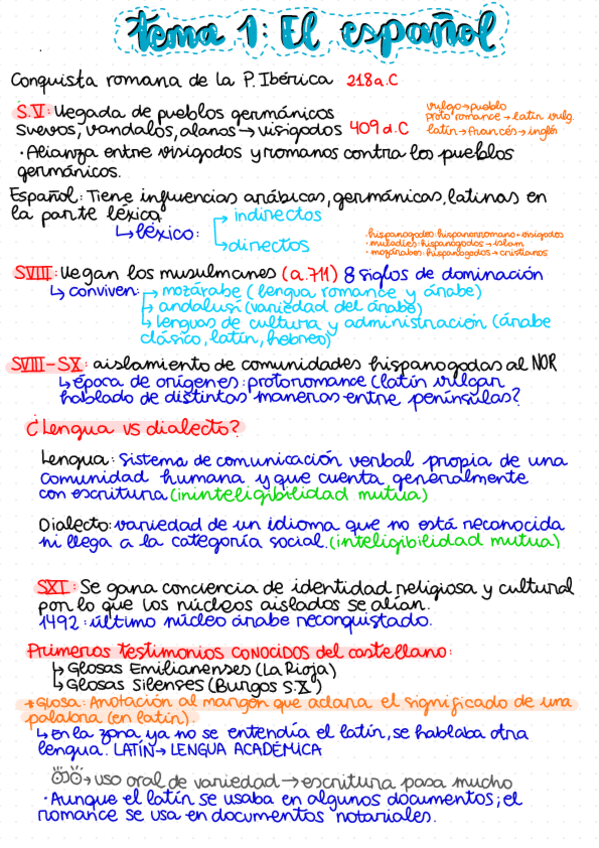 tema 1: El español
Conquista romana de la P. Ibérica 218 a.C
S.V: llegada de pueblos germánicos
suevos, vandalos, alanos → visigodos 409 d.C
vulgo → pueblo
proto romance → latín vulg.
latín → francés → inglés
· Alianza entre visigodos y romanos contra los pueblos
germánicos.
Español: Tiene influencias arábicas, germánicas, latinas en
la parte léxica
↳ léxico:
→ indirectos
→ directos
· hispanogodos: hispanorromano + visigodos
· muladíes: hispanogodos → islam
· mozárabes: hispanogodos → cristianos
SVIII: llegan los musulmanes (a.711) 8 siglos de dominación
↳ conviven:
→ mozárabe (lengua romance y árabe)
→ andalusí (variedad del árabe)
→ lenguas de cultura y administración (árabe
clásico, latín, hebreo)
SVIII - SX: aislamiento de comunidades hispanogodas al NOR
↳ época de orígenes: protoromance (latín vulgar
hablado de distintas maneras entre penínsulas?
¿Lengua vs dialecto?
Lengua: Sistema de comunicación verbal propia de una
comunidad humana y que cuenta generalmente
con escritura (ininteligibilidad mutua)
Dialecto: variedad de un idioma que no está reconocida
ni llega a la categoría social. (inteligibilidad mutua)
SXI: Se gana conciencia de identidad religiosa y cultural
por lo que los núcleos aislados se alían.
1492: último núcleo árabe reconquistado.
Primeros testimonios CONOCIDOS del castellano:
↳ Glosas Emilianenses (La Rioja)
↳ Glosas Silenses (Burgos S.X)
*Glosa: Anotación al margen que aclara el significado de una
palabra (en latín).
↳ en la zona ya no se entendía el latín, se hablaba otra
lengua. LATÍN → LENGUA ACADÉMICA
OJO → uso oral de variedad → escritura pasa mucho
· Aunque el latín se usaba en algunos documentos; el
romance se usa en documentos notariales.